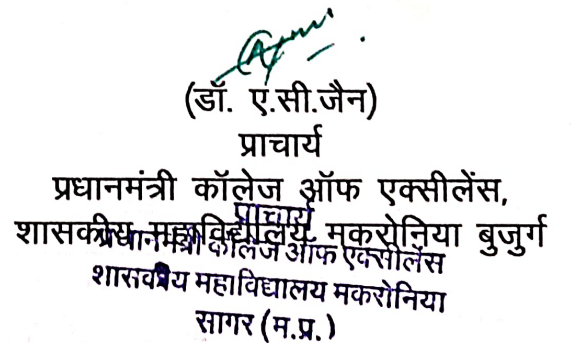 (डॉ. ए.सी.जैन)
प्राचार्य
प्रधानमंत्री कॉलेज ऑफ एक्सीलेंस,
शासकीय महाविद्यालय मकरोनिया बुजुर्ग
प्राचार्य
प्रधानमंत्री कॉलेज ऑफ एक्सीलेंस
शासकीय महाविद्यालय मकरोनिया
सागर (म.प्र.)